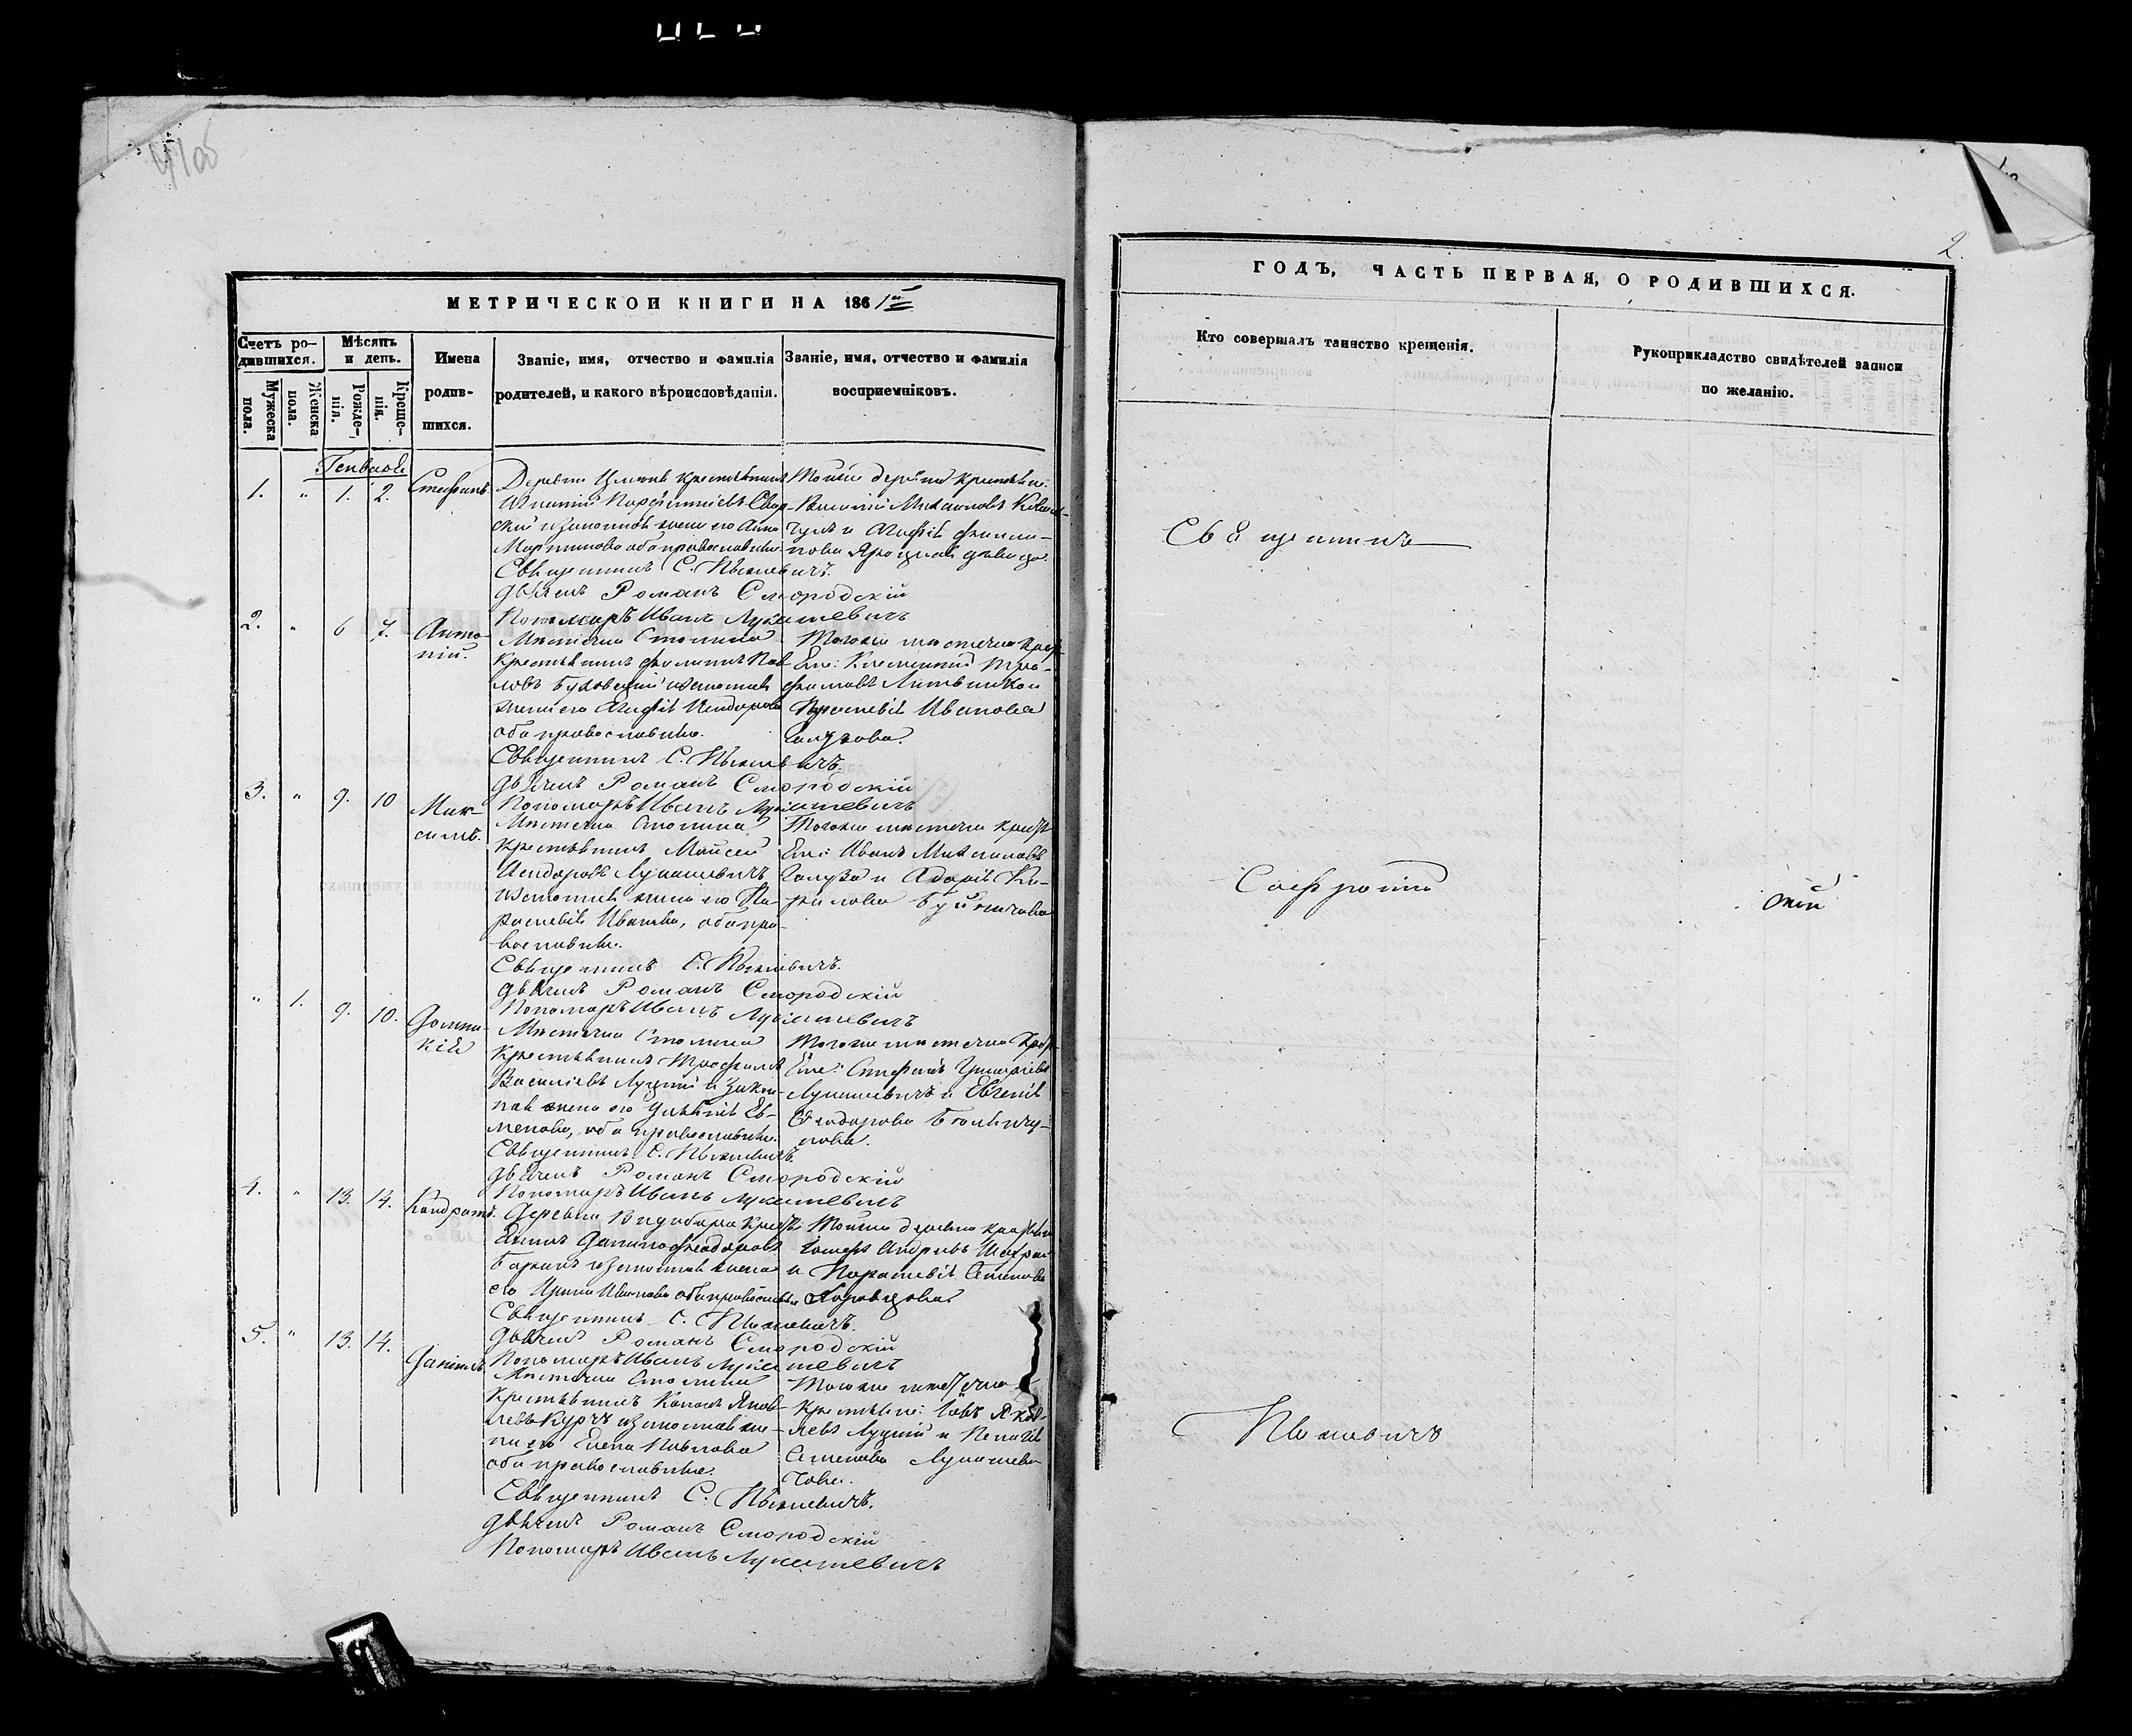 МЕТРИЧЕСКОЙ КНИГИ НА 1861й
Счетъ ро-
дившихся.
Мужеска
пола.
Женска
пола.
Мѣсяцъ
и день.
Рожде-
нія.
Креще-
нія.
Имена
родив-
шихся.
Званіе, имя, отчество и фамилія
родителей, и какого вѣроисповѣданія.
Званіе, имя, отчество и фамилія
воспріемниковъ.
Генваря
1. " 1. 2. Стефанъ.
Деревни крестьянинъ
ский и законная жена его Анна
Мартинова оба православные
Священникъ С. Пыжевичъ.
Дьячекъ Романъ Смородскій
Пономарь Иванъ Лукашевичъ
Тойже деревни крестьяне:
Василій Михаиловъ
и Агафія Филипи-
пова девица.
2. " 6 7. Анто-
ній.
Мѣстечка Столина
крестьянинъ Филиппъ Пав-
ловъ Буховскій и законная
жена его Агафія Исидорова
оба православные.
Священникъ С. Пыжевичъ.
Дьячекъ Романъ Смородскій
Пономарь Иванъ Лукашевичъ
Тогоже мѣстечка крест-
яне: Климентій Тро-
фимовъ Литвинко и
Параскевія Иванова
Галузова.
3. " 9. 10 Мак-
симъ.
Мѣстечка Столина
крестьянинъ Моисей
Исидоровъ Лукашевичъ
и законная жена его Па-
раскевія Иванова, оба пра-
вославные.
Священникъ С. Пыжевичъ.
Дьячекъ Романъ Смородскій
Пономарь Иванъ Лукашевичъ
Тогоже мѣстечка крестья-
яне: Иванъ Михаиловъ
Галуза и Адарія Ки-
рилова
" 1. 9. 10. Домни-
кія
Мѣстечка Столина
крестьянинъ Трофимъ
Василіевъ Луцкій и закон-
ная жена его Уліянія Ев-
менова, оба православные.
Священникъ С. Пыжевичъ.
Дьячекъ Романъ Смородскій
Пономарь Иванъ Лукашевичъ
Тогоже мѣстечка крест-
яне: Стефанъ Григоріевъ
Лукашевичъ и Евгенія
Феодорова
4. " 13. 14. Кондратъ.
Деревни Видибора кресть-
янинъ Данило Феодоровъ
и законная жена
его Ирина Иванова оба православные
Священникъ С. Пыжевичъ.
Дьячекъ Романъ Смородскій
Пономарь Иванъ Лукашевичъ
Тойже деревни крестьяне
Іосифъ Андреевъ
и Параскевія Семенова
5. " 13. 14. Даніилъ
Мѣстечка Столина
крестьянинъ Яков-
левъ Курчъ и законная же-
на его Елена Павлова
оба православные.
Священникъ С. Пыжевичъ.
Дьячекъ Романъ Смородскій
Пономарь Иванъ Лукашевичъ
Тогоже мѣстечка
крестьяне: Іовъ Яков-
левъ Луцкій и Пелагія
Семенова Лукашеви-
чова.
2.
ГОДЪ, ЧАСТЬ ПЕРВАЯ, О РОДИВШИХСЯ.
Кто совершалъ таинство крещенія.
Рукоприкладство свидѣтелей записи
по желанію.
Священникъ
Софроній
Пыжевичъ